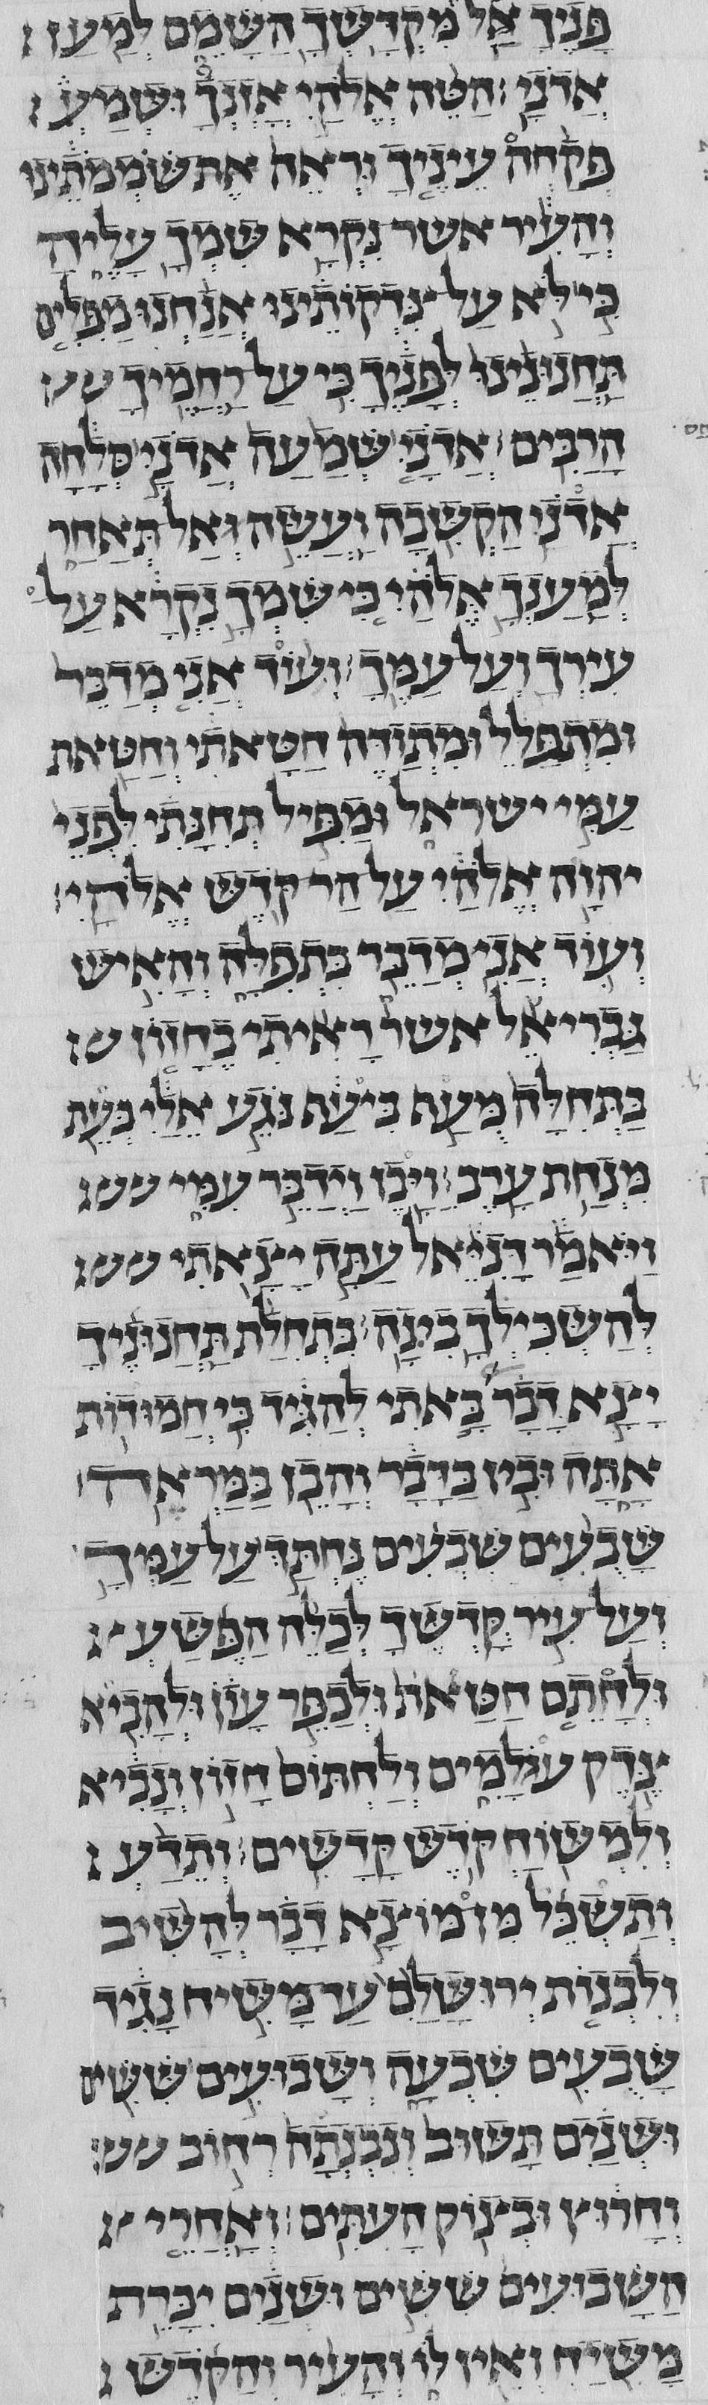 פָּנֶיךָ עַל מִקְדָּשְׁךָ הַשָּׁמֵם לְמַעַן
אֲדֹנָי׃ הַטֵּה אֱלֹהַי אָזְנְךָ וּשְׁמָע
פְּקַחה עֵינֶיךָ וּרְאֵה אֶת שֹׁמְמֹתֵינוּ
וְהָעִיר אשר נִקְרָא שִׁמְךָ עָלֶיהָ
כִּי לֹא עַל צִדְקוֹתֵינוּ אֲנַחְנוּ מַפִּילִים
תַּחֲנוּנֵינוּ לְפָנֶיךָ כִּי עַל רַחֲמֶיךָ
הָרַבִּים׃ אֲדֹנָי שְׁמָעָה אֲדֹנָי סְלָחָה
אֲדֹנָי הַקְשִׁבָה וַעֲשֵׂה וְאַל תְּאַחַר
לְמַעַנְךָ אֱלֹהַי כִּי שִׁמְךָ נִקְרָא עַל
עִירְךָ וְעַל עַמֶּךָ׃ וְעוֹד אֲנִי מְדַבֵּר
וּמִתְפַּלֵּל וּמִתְוַדֶּה חַטָּאתִי וְחַטַּאת
עַמִּי ישראל וּמַפִּיל תְּחִנָּתִי לִפְנֵי
יהוָה אֱלֹהַי עַל הַר קֹדֶשׁ אֱלֹהָי׃
וְעוֹד אֲנִי מְדַבֵּר בַּתְּפִלָּה וְהָאִישׁ
גַּבְרִיאֵל אשר רָאִיתִי בֶחָזוֹן
בַּתְּחִלָּה מֻעָף בִּיעָף נֹגֵעַ אֵלַי כְּעֵת
מִנְחַת עָרֶב׃ וַיָּבֶן וַיְדַבֵּר עִמִּי
וַיֹּאמַר דָּנִיֵּאל עַתָּה יָצָאתִי
לְהַשְׂכִּילְךָ בִינָה׃ בִּתְחִלַּת תַּחֲנוּנֶיךָ
יָצָא דָבָר בָּאתִי לְהַגִּיד כִּי חֲמוּדוֹת
אָתָּה וּבִין בַּדָּבָר וְהָבֵן בַּמַּרְאֶה׃
שָׁבֻעִים שִׁבְעִים נֶחְתַּךְ עַל עַמְּךָ
וְעַל עִיר קָדְשֶׁךָ לְכַלֵּה הַפֶּשַׁע
וּלְחָתֵם חַטָּאת וּלְכַפֵּר עָוֹן וּלְהָבִיא
צֶדֶק עוֹלָמִים וְלַחְתּוֹם חָזוֹן וְנָבִיא
וְלִמְשׁוֹחַ קֹדֶשׁ קָדָשִׁים׃ וְתֵדַע
וְתַשְׂכֵּל מִן מוֹצָא דָבָר לְהָשִׁיב
וְלִבְנוֹת יְרוּשָׁלַ‍ִם עַד מָשִׁיחַ נָגִיד
שָׁבֻעִים שִׁבְעָה וְשָׁבוּעִים שִׁשִּׁים
וּשְׁנַיִם תָּשׁוּב וְנִבְנְתָה רְחוֹב
וְחָרוּץ וּבְצוֹק הָעִתִּים׃ וְאַחֲרֵי
הַשָּׁבוּעִים שִׁשִּׁים וּשְׁנַיִם יִכָּרֵת
מָשִׁיחַ וְאֵין לוֹ וְהָעִיר וְהַקֹּדֶשׁ